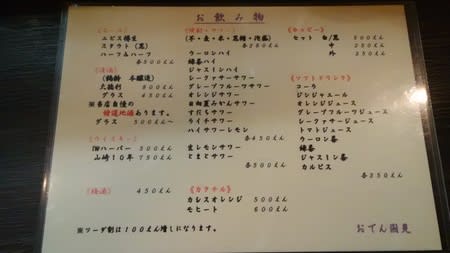 お飲み物
《ビール》
エビス樽生
スタウト(黒)
ハーフ&ハーフ
各500えん
《清酒》
(鶴齢 本醸造)
大徳利 800えん
グラス 450えん
※当店自慢の
特選地酒あります。
グラス 500えん～
《ウイスキー》
IWハーパー 500えん
山崎10年 750えん
《梅酒》 450えん
※ソーダ割は100えん増しになります。
(芋・麦・米・黒糖・泡盛)
各350えん
ウーロンハイ
緑茶ハイ
ジャスミンハイ
シークァーサーサワー
グレープフルーツサワー
オレンジサワー
日向夏みかんサワー
すだちサワー
ライチサワー
ハイサワーレモン
各450えん
生レモンサワー
とまとサワー
各500えん
《カクテル》
カシスオレンジ 500えん
モヒート 600えん
《ホッピー》
セット 白/黒 500えん
中 250えん
外 250えん
《ソフトドリンク》
コーラ
ジンジャエール
オレンジジュース
グレープフルーツジュース
シークァーサージュース
トマトジュース
ウーロン茶
緑茶
ジャスミン茶
カルピス
各350えん
おでん園見